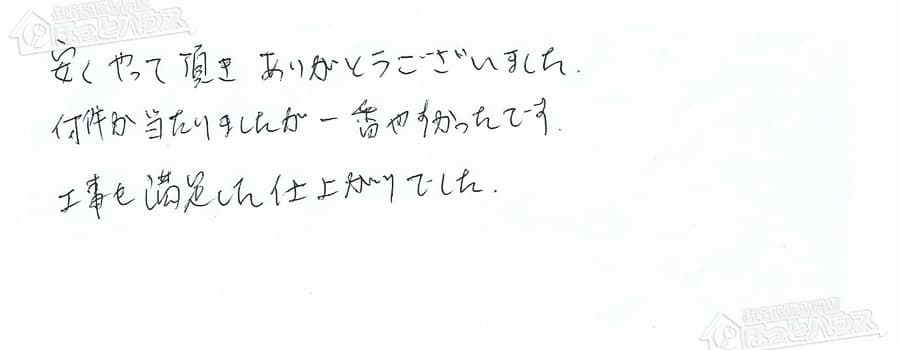 住宅設備専門店
ほっとハウス
安くやって頂き ありがとうございました.
何件か当たりましたが一番やすかったです.
工事も満足した仕上がりでした.
住宅設備専門店
ほっとハウス